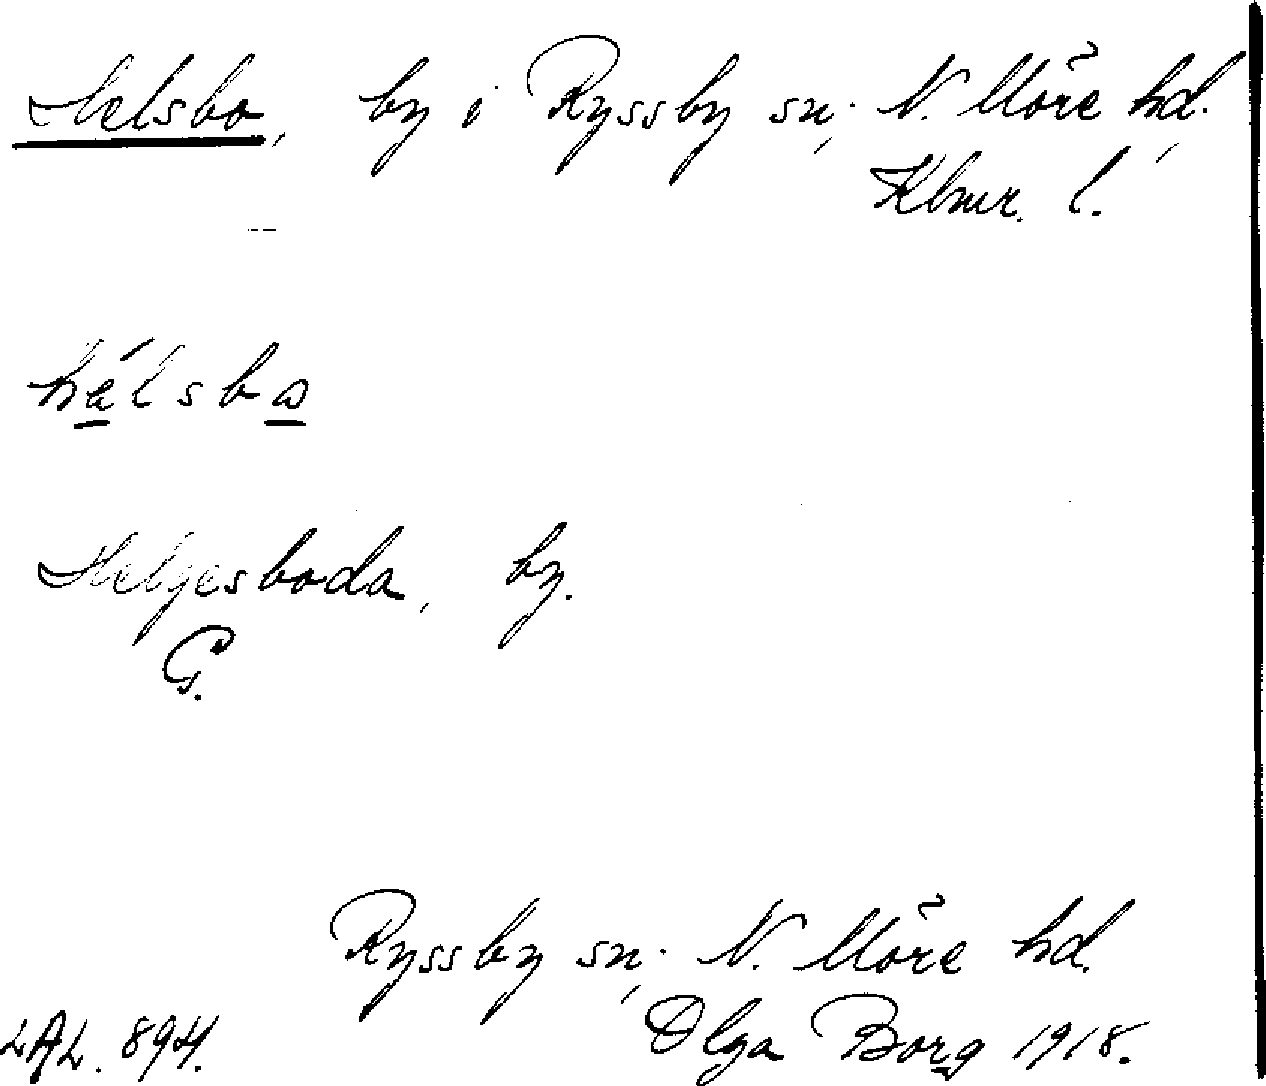 Helsbo, by i Ryssby sn, N. Möre hd,
Kbmr. l.
hälsbo
Helgesboda, by.
G.
Ryssby sn, N. Möre hd.
Olga Borg 1918.
LAL. 894.